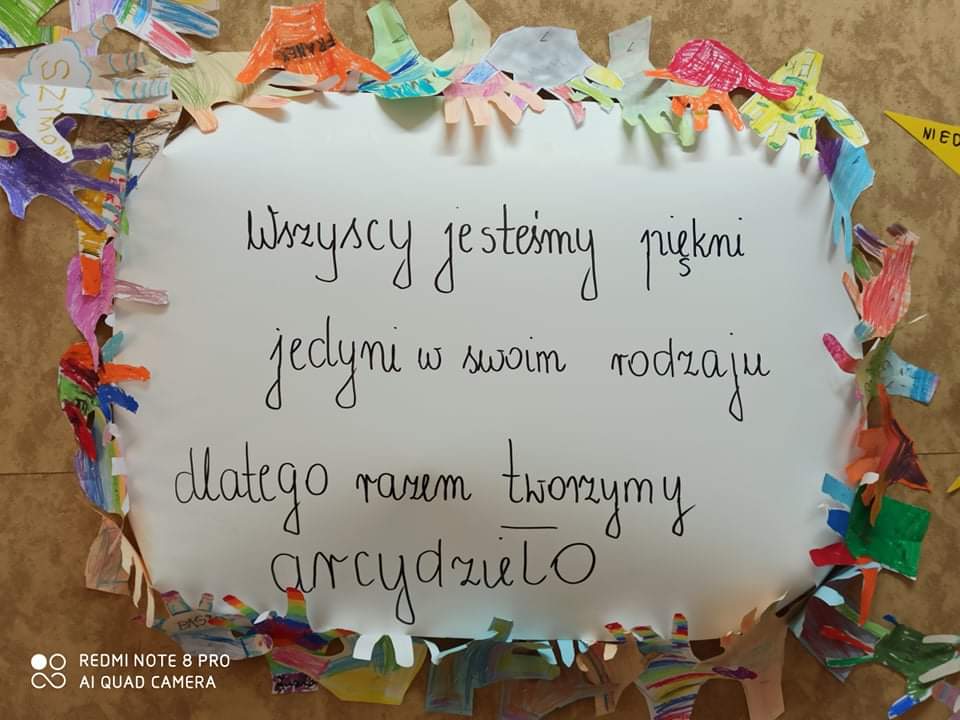 SZYMON
FRANEK
NIED
Wszyscy jesteśmy piękni
jedyni w swoim rodzaju
dlatego razem tworzymy
arcydzieło
REDMI NOTE 8 PRO
AI QUAD CAMERA